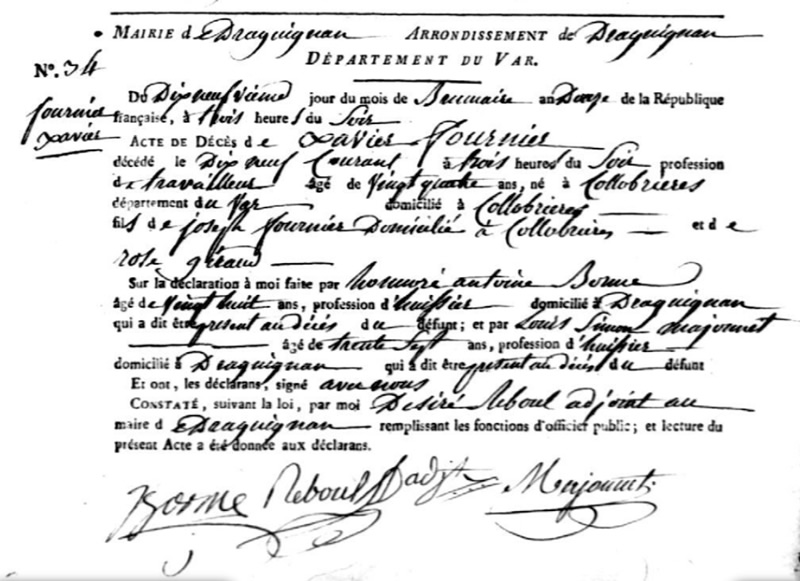 MAIRIE de Draguignan ARRONDISSEMENT de Draguignan
DÉPARTEMENT DU VAR.
N°. 34
fournier
xavier
Du Dix neuf vieme jour du mois de Brumaire an Douze de la République
française, à trois heures du Soir
ACTE DE DÉCÈS de xavier fournier
décédé le Dix neuf Courant à trois heures du Soir profession
de travailleur âgé de vingt quatre ans, né à Collobrieres
département du Var domicilié à Collobrieres
fils de joseph fournier Domicilié à Collobrieres et de
rose giraud
Sur la déclaration à moi faite par honnoré antoine Borme
âgé de vingt huit ans, profession d'huissier domicilié à Draguignan
qui a dit être present au décés du défunt; et par Louis Simon majonnet
âgé de trente Sept ans, profession d'huissier
domicilié à Draguignan qui a dit être present au décés du défunt
Et ont, les déclarans, signé avec nous
CONSTATÉ, suivant la loi, par moi Desiré Reboul adjoint au
maire de Draguignan remplissant les fonctions d'officier public; et lecture du
présent Acte a été donnée aux déclarans.
Borme Reboul adjt Majonnet